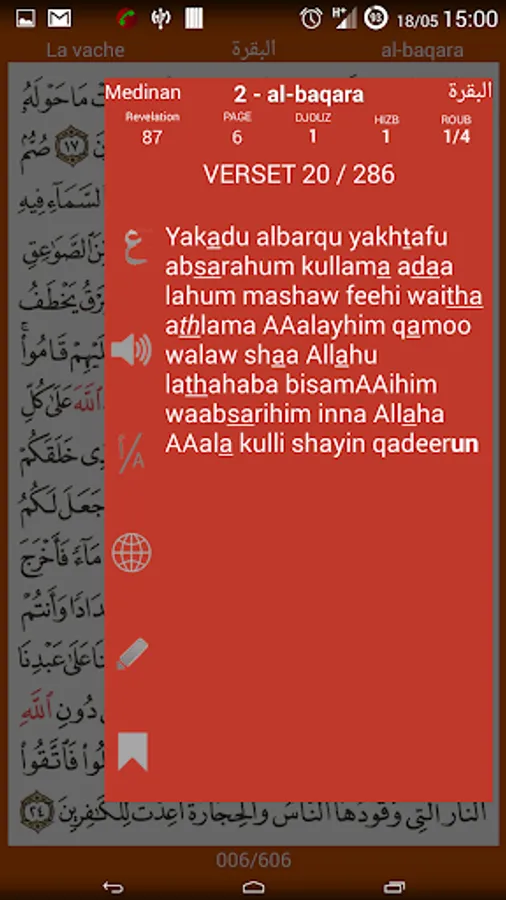 H+ 93 18/05 15:00
La vache البقرة al-baqara
Medinan 2 - al-baqara البقرة
Revelation PAGE DJOUZ HIZB ROUB
87 6 1 1 1/4
VERSET 20 / 286
Yakadu albarqu yakhtafu
absarahum kullama adaa
lahum mashaw feehi waitha
athlama AAalayhim qamoo
walaw shaa Allahu
lathahaba bisamAAihim
waabsarihim inna Allaha
AAala kulli shayin qadeerun
ع
I/A
مَا حَوْلَهُۥ
١٧ صُمٌّ
ٱلسَّمَآءِ فِيهِ
ٱلصَّوَٰعِقِ
يَخْطَفُ
قَامُوا۟
ٱللَّهَ عَلَىٰ كُلِّ
خَلَقَكُمْ
جَعَلَ لَكُمُ
مَآءً فَأَخْرَجَ
وَأَنتُمْ
عَلَىٰ عَبْدِنَا
دُونِ ٱللَّهِ
فَٱتَّقُوا۟
ٱلنَّارَ ٱلَّتِى وَقُودُهَا ٱلنَّاسُ وَٱلْحِجَارَةُ أُعِدَّتْ لِلْكَٰفِرِينَ ٢٤
006/606